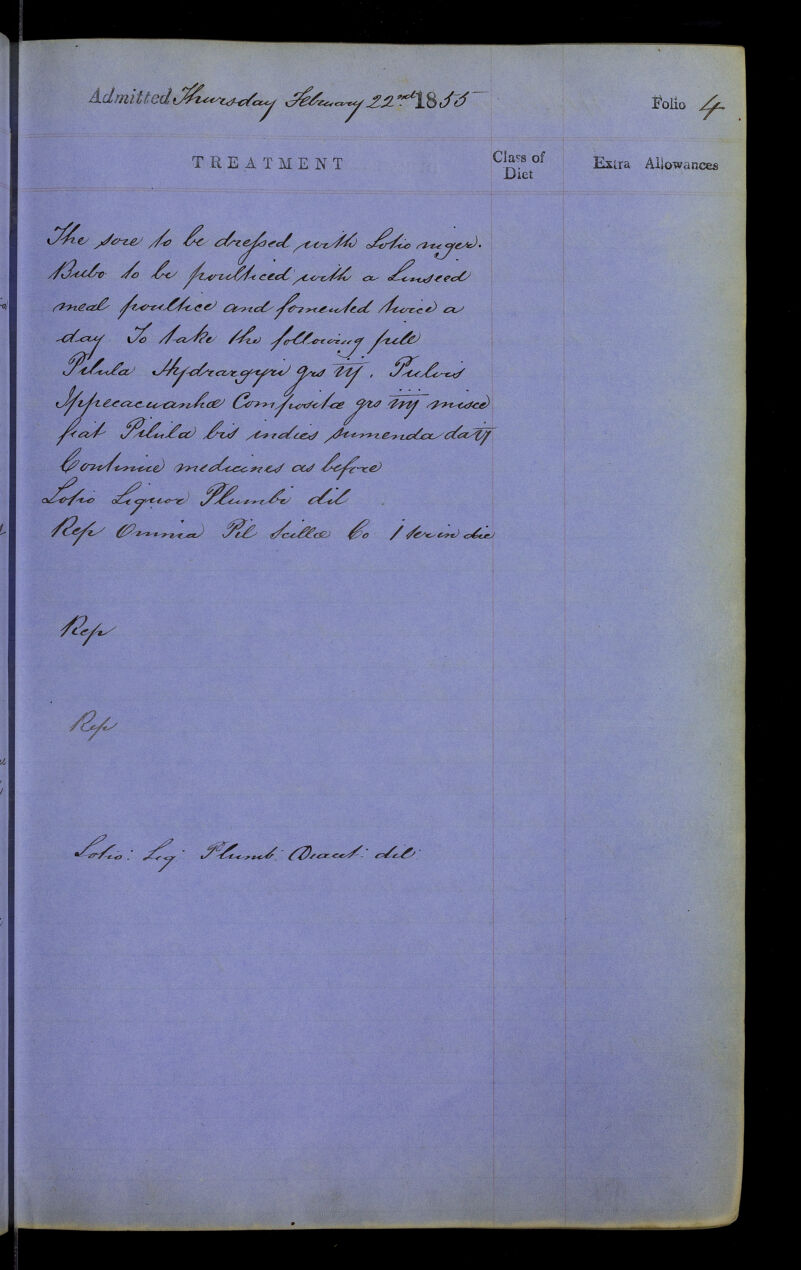 Admitted Thursday February 22nd 1855
Folio 4
TREATMENT
Class of Diet
Extra Allowances
The sore to be dressed with Lotio niger.
Bubo to be poulticed with a Linseed
meal poultice and fomented twice a
day. To take the following pill
Pilula Hydrargyri grs iij. Pulvis
Ippecacuanhæ Compositæ grs iiij misce
fiat Pilula bis indies sumenda da ij
Continue medicines as before
Lotio Liquor Plumbi dil
Rep Omnia Pil Scillæ Co 1 ter in die
Rep
Rep
Lotio: Liq: Plumb: Diacet: dil: